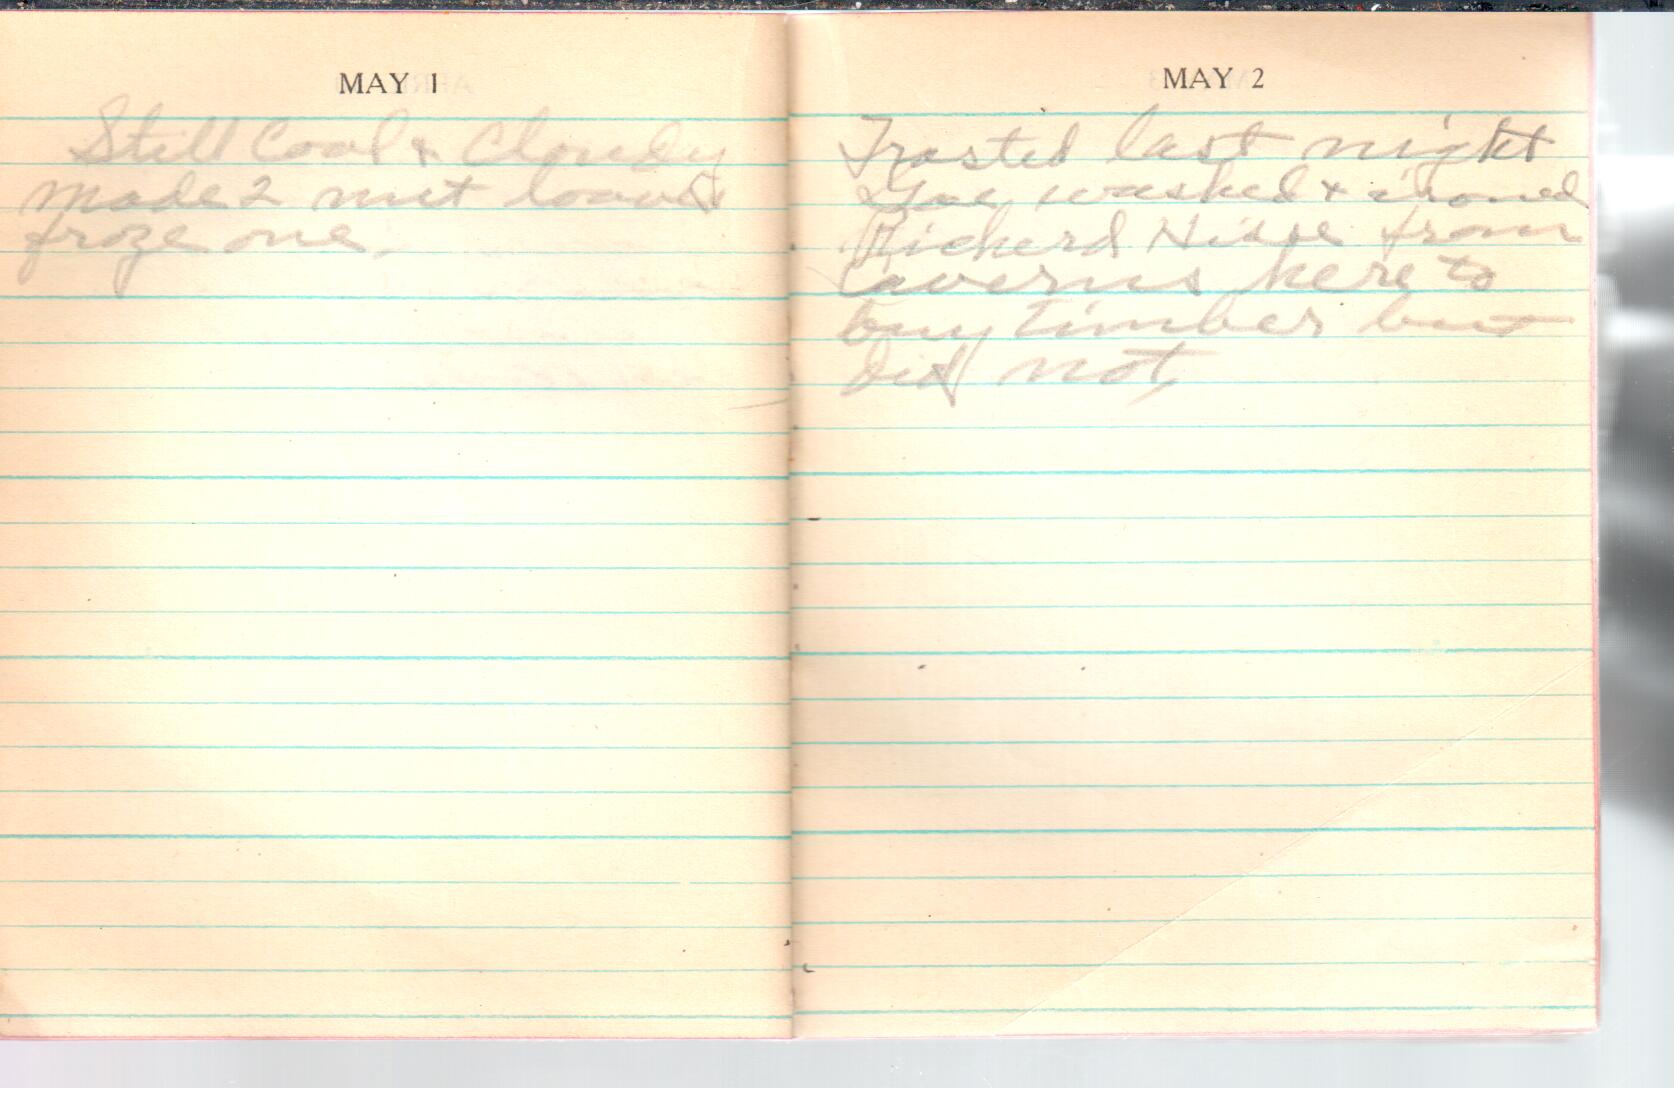 MAY 1
Still Cool & Cloudy
made 2 nut loaves
froze one.
MAY 2
Frosted last night
washed & ironed
Rickerd from
Caverns here to
buy timber but
did not